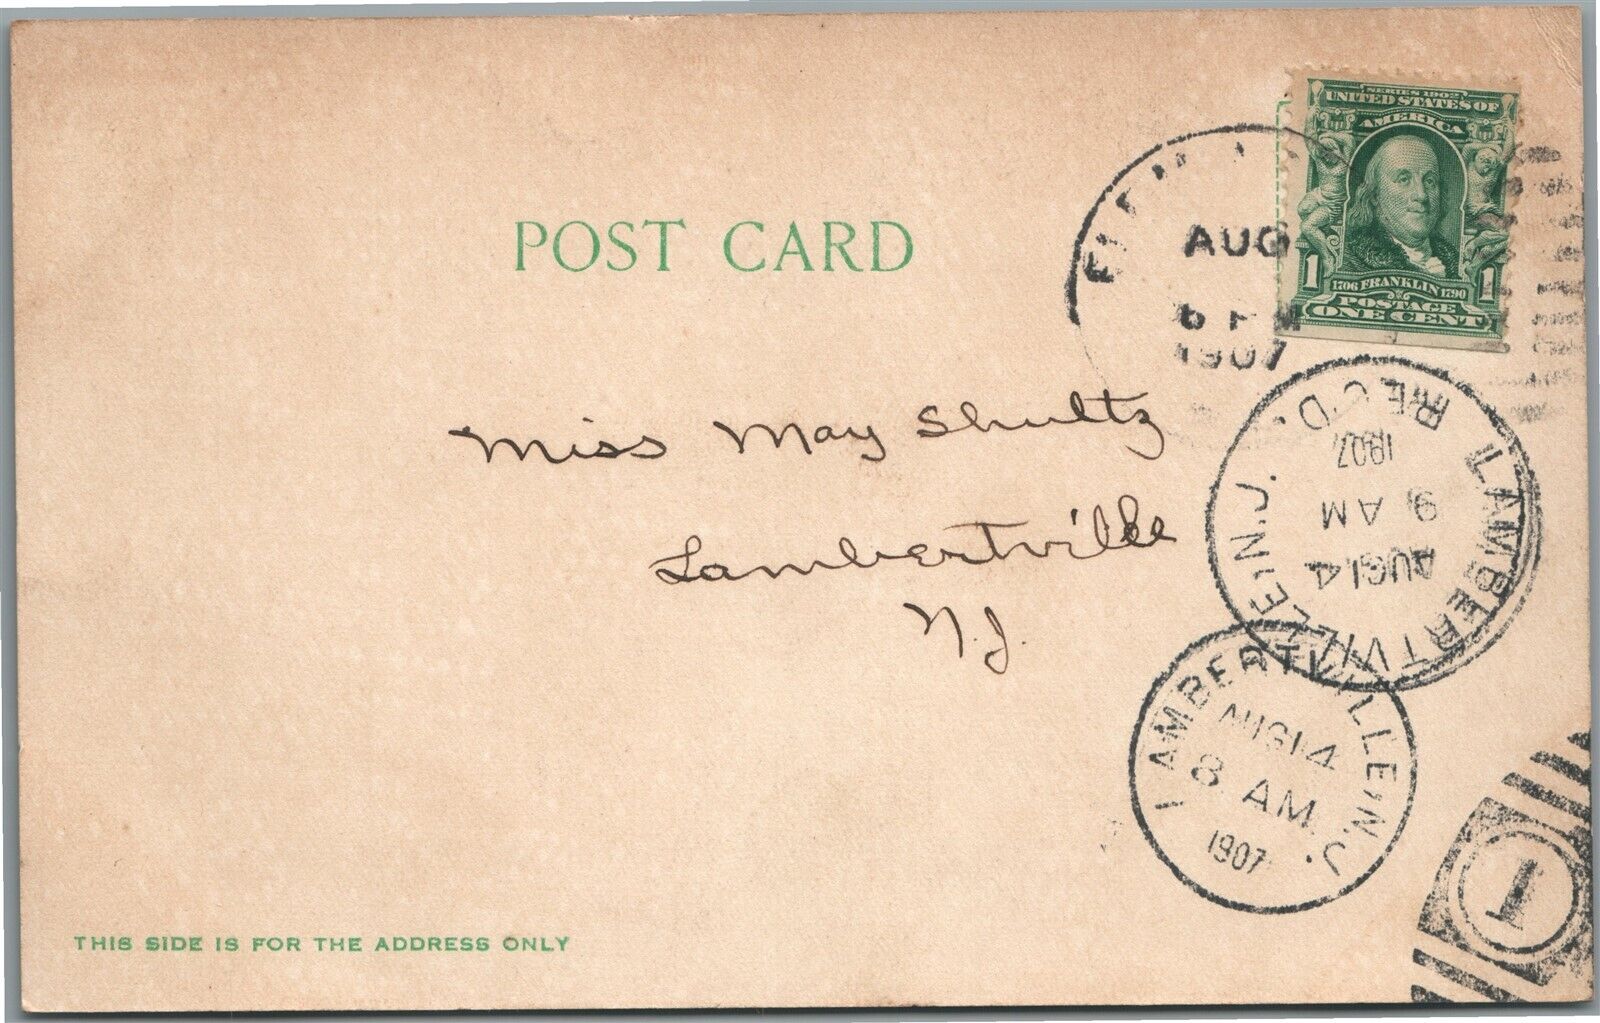 SERIES 1902
UNITED STATES OF
AMERICA
1 1706 FRANKLIN 1790 1
POSTAGE
ONE CENT
AUG
6 PM
1907
POST CARD
Miss May Shultz
Lambertville
N.J.
LAMBERTVILLE, N.J.
AUG 14
9 AM
1907
REC'D.
LAMBERTVILLE, N.J.
AUG 14
8 AM
1907
1
THIS SIDE IS FOR THE ADDRESS ONLY